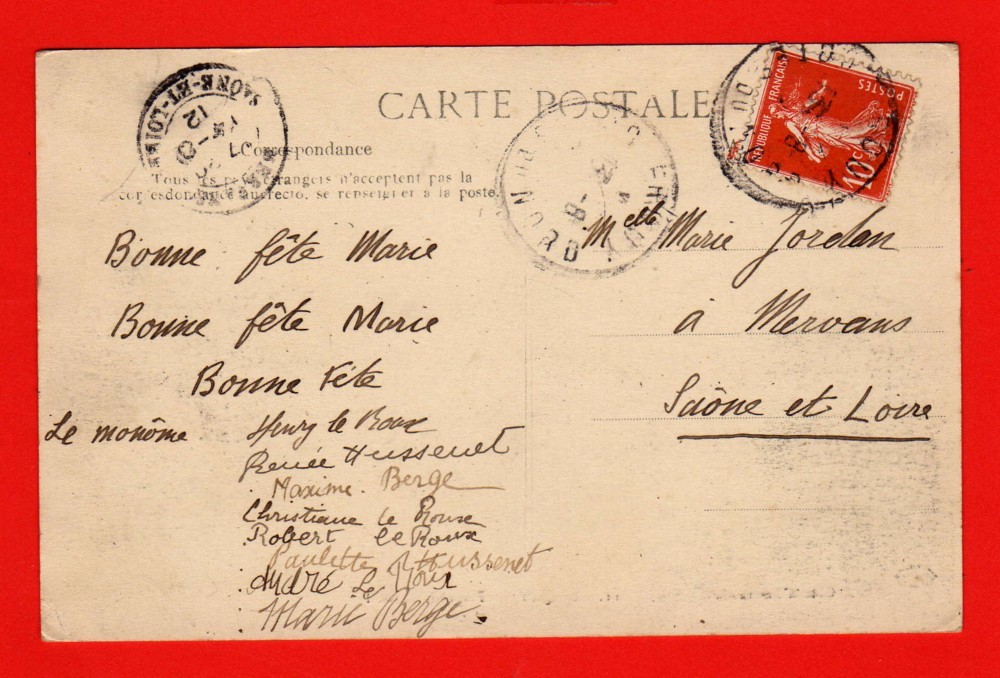 CARTE POSTALE
Correspondance
Tous les pays étrangers n'acceptent pas la
correspondance au recto, se renseigner à la poste
SAONE-ET-LOIRE
NORD
REPUBLIQUE FRANÇAISE
POSTES
10c
Bonne fête Marie
Bonne fête Marie
Bonne Fête
Le monôme
Henry le Roux
Renée Hussenet
Maxime Berge
Christiane le Roux
Robert le Roux
Paulette Hussenet
André Le Roux
Marie Berge
Melle Marie Jordan
à Mervans
Saône et Loire